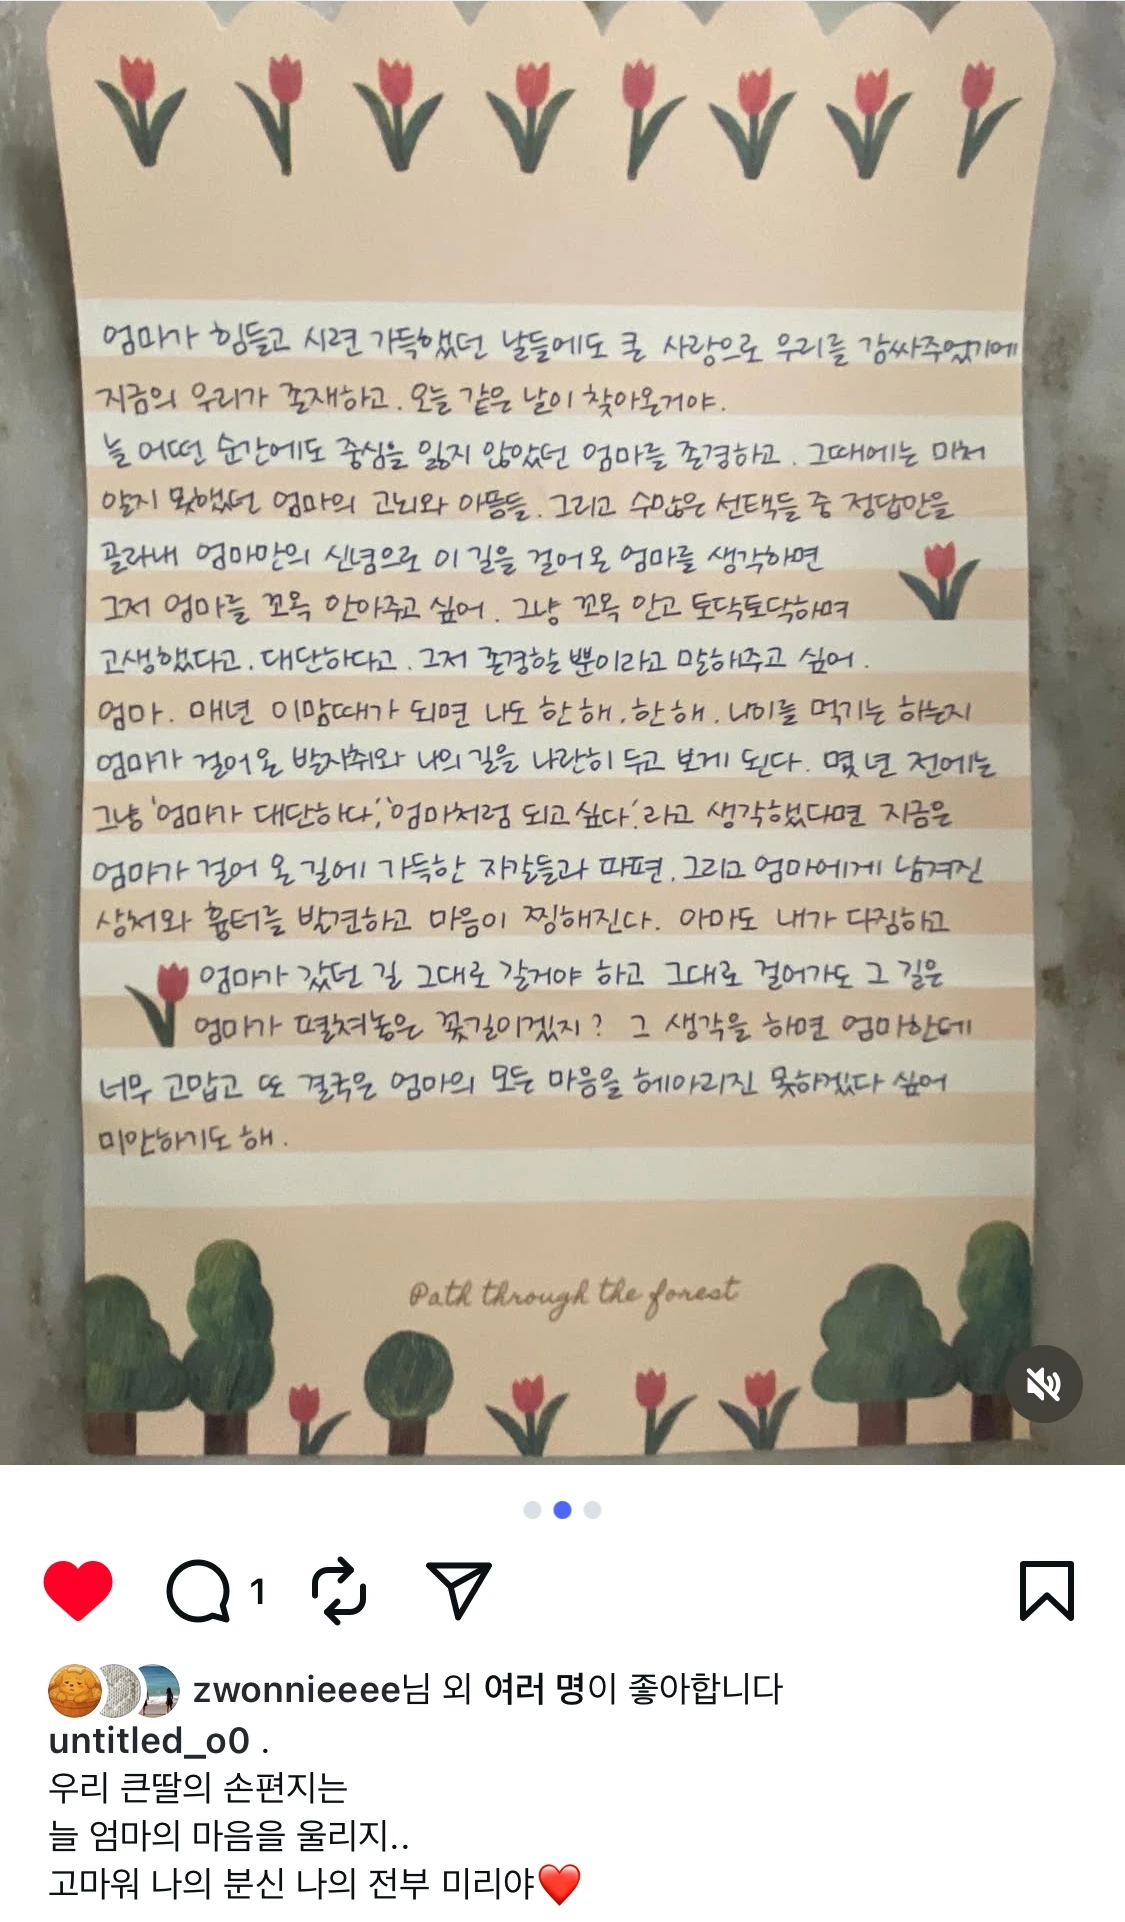 엄마가 힘들고 시련 가득했던 날들에도 큰 사랑으로 우리를 감싸주었기에
지금의 우리가 존재하고. 오늘 같은 날이 찾아온거야.
늘 어떤 순간에도 중심을 잃지 않았던 엄마를 존경하고. 그때에는 미처
알지 못했던 엄마의 고뇌와 아픔들. 그리고 수많은 선택들 중 정답만을
골라내 엄마만의 신념으로 이 길을 걸어온 엄마를 생각하면
그저 엄마를 꼬옥 안아주고 싶어. 그냥 꼬옥 안고 토닥토닥하며
고생했다고. 대단하다고. 그저 존경할 뿐이라고 말해주고 싶어.
엄마. 매년 이맘때가 되면 나도 한해. 한해. 나이를 먹기는 하는지
엄마가 걸어온 발자취와 나의 길을 나란히 두고 보게 된다. 몇 년 전에는
그냥 '엄마가 대단하다', '엄마처럼 되고싶다'. 라고 생각했다면 지금은
엄마가 걸어 온 길에 가득한 자갈들과 파편. 그리고 엄마에게 남겨진
상처와 흉터를 발견하고 마음이 찡해진다. 아마도 내가 다짐하고
엄마가 갔던 길 그대로 갈거야 하고 그대로 걸어가도 그 길은
엄마가 펼쳐놓은 꽃길이겠지? 그 생각을 하면 엄마한테
너무 고맙고 또 결국은 엄마의 모든 마음을 헤아리진 못하겠다 싶어
미안하기도 해.
Path through the forest
1
zwonnieeee님 외 여러 명이 좋아합니다
untitled_o0 .
우리 큰딸의 손편지는
늘 엄마의 마음을 울리지..
고마워 나의 분신 나의 전부 미리야❤️